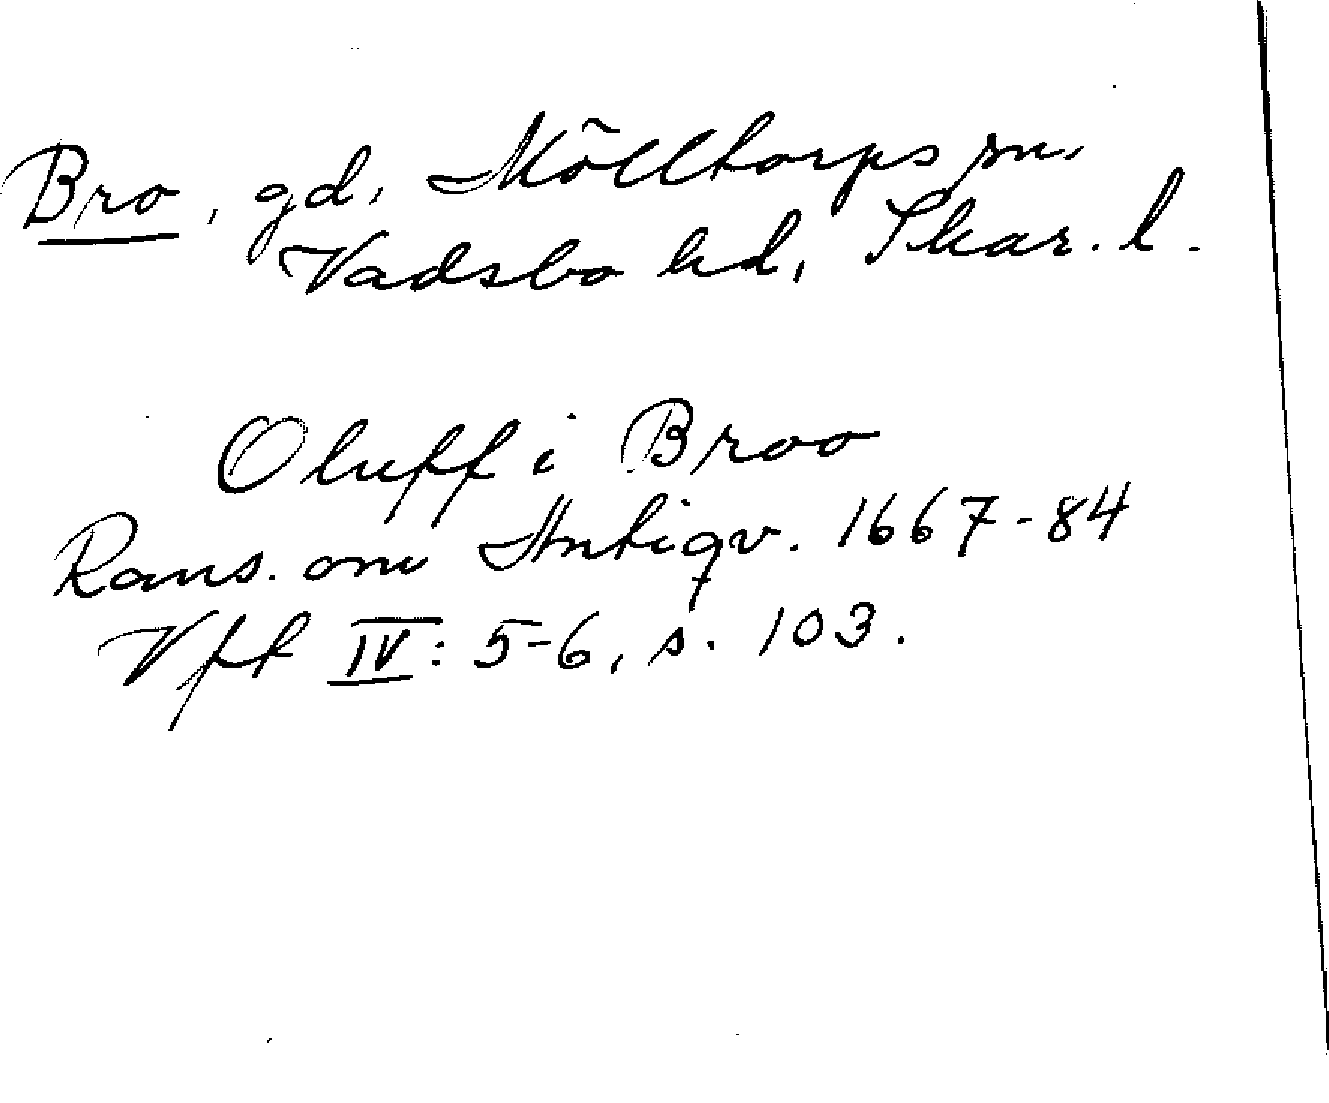 Bro, gd, Mölltorps sn,
Vadsbo hd, Skar. l.
Oluff i Broo
Rans. om Antiqv. 1667-84
Vff IV: 5-6, s. 103.